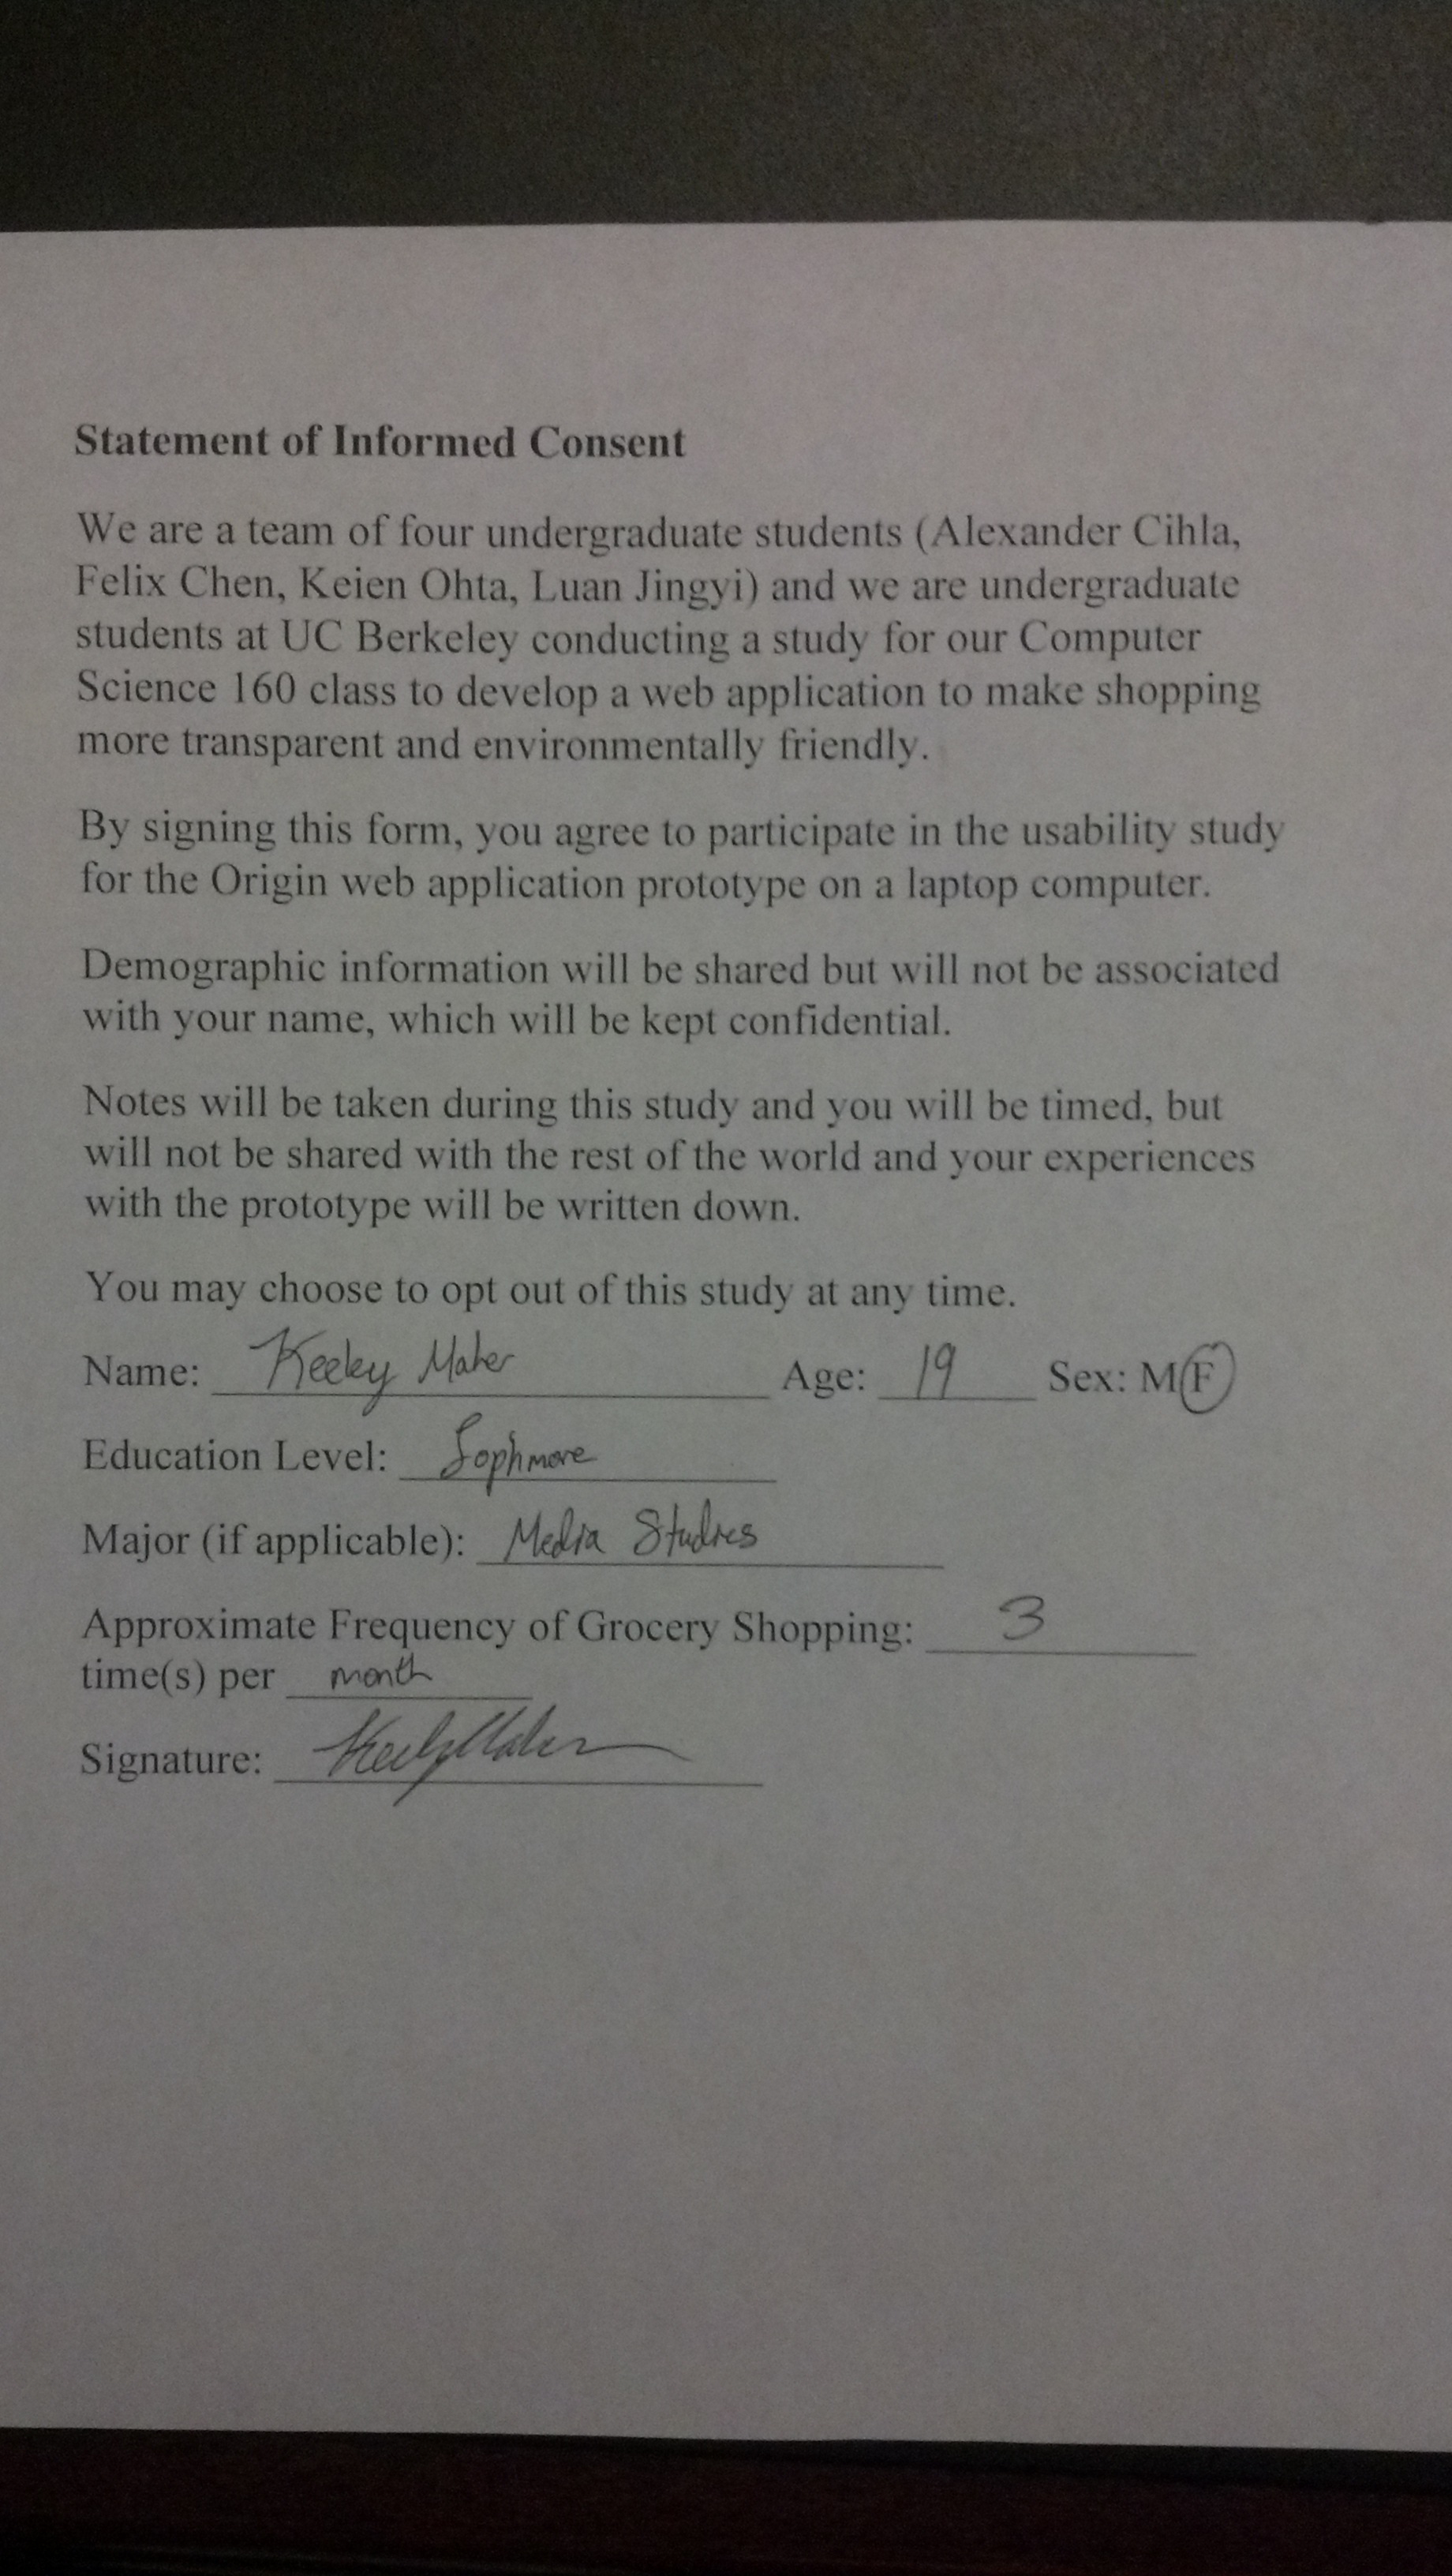 Statement of Informed Consent
We are a team of four undergraduate students (Alexander Cihla,
Felix Chen, Keien Ohta, Luan Jingyi) and we are undergraduate
students at UC Berkeley conducting a study for our Computer
Science 160 class to develop a web application to make shopping
more transparent and environmentally friendly.
By signing this form, you agree to participate in the usability study
for the Origin web application prototype on a laptop computer.
Demographic information will be shared but will not be associated
with your name, which will be kept confidential.
Notes will be taken during this study and you will be timed, but
will not be shared with the rest of the world and your experiences
with the prototype will be written down.
You may choose to opt out of this study at any time.
Name: Keeley Maher Age: 19 Sex: M F
Education Level: Sophmore
Major (if applicable): Media Studies
Approximate Frequency of Grocery Shopping: 3
time(s) per month
Signature: Keeley Maher